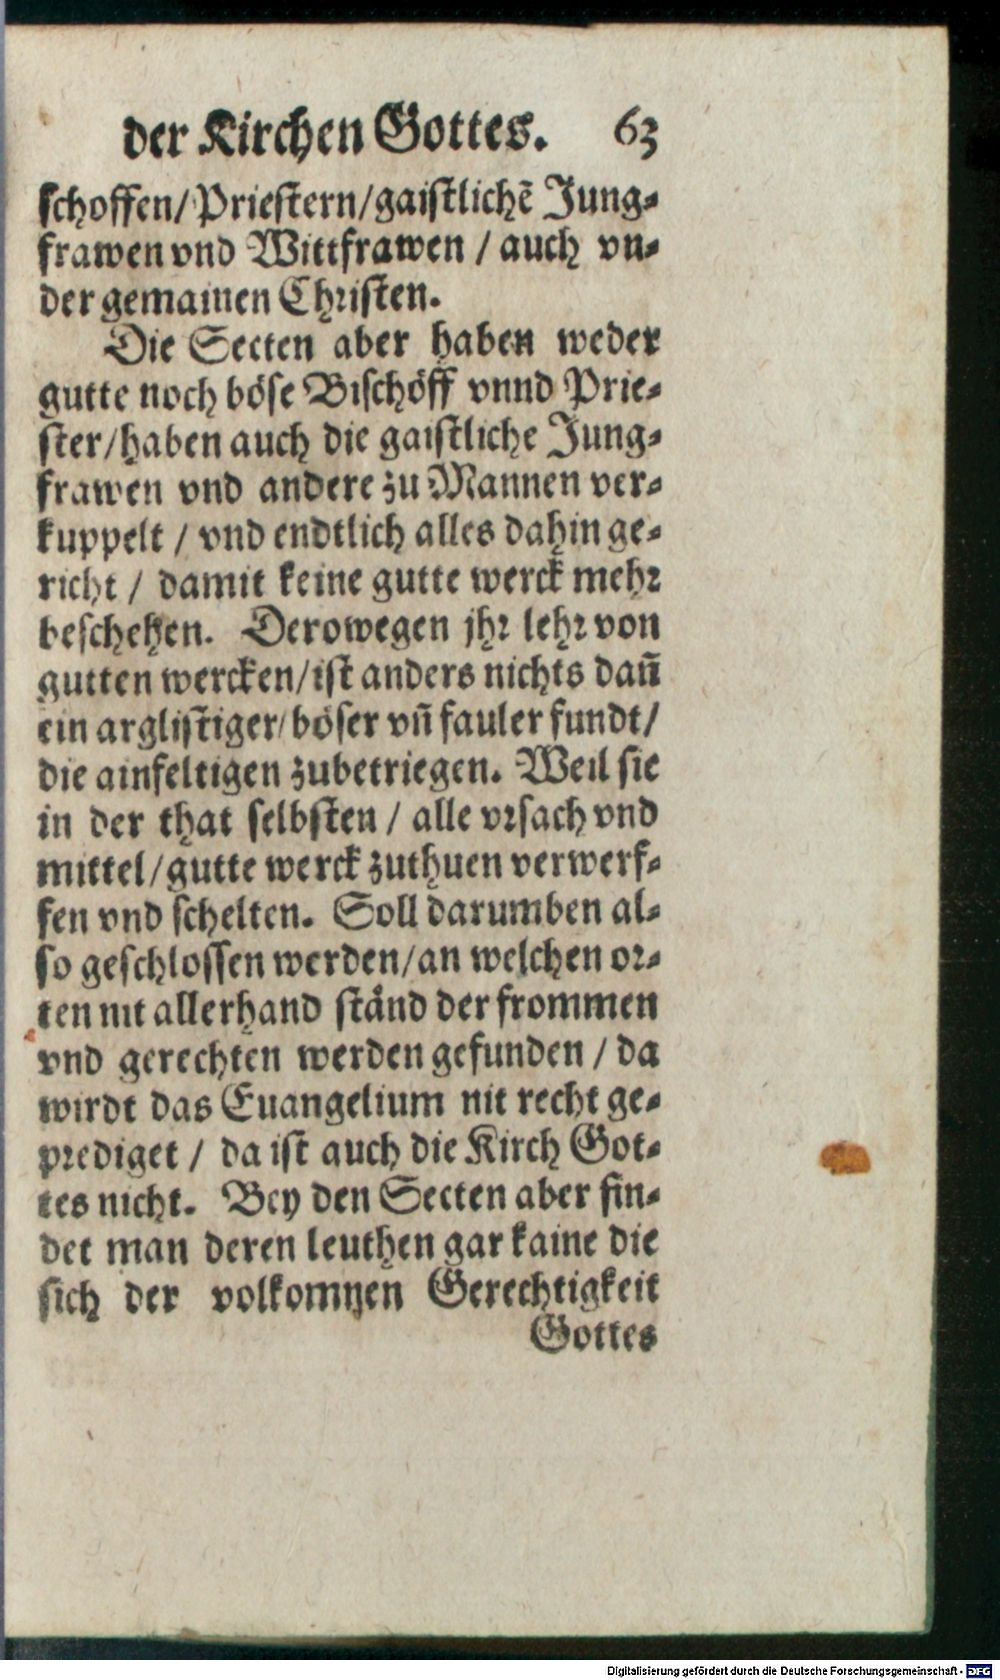 der Kirchen Gottes. 63
schoffen/Priestern/gaistlichē Jung-
frawen vnd Wittfrawen / auch vn-
der gemainen Christen.
Die Secten aber haben weder
gutte noch böse Bischöff vnnd Prie-
ster/haben auch die gaistliche Jung-
frawen vnd andere zu Mannen ver-
kuppelt / vnd endtlich alles dahin ge-
richt / damit keine gutte werck mehr
beschehen. Derowegen jhr lehr von
gutten wercken/ist anders nichts dañ
ein arglistiger/böser vñ fauler fundt/
die ainfeltigen zubetriegen. Weil sie
in der that selbsten / alle vrsach vnd
mittel/gutte werck zuthuen verwerf-
fen vnd schelten. Soll darumben al-
so geschlossen werden/an welchen or-
ten nit allerhand ständ der frommen
vnd gerechten werden gefunden / da
wirdt das Euangelium nit recht ge-
prediget / da ist auch die Kirch Got-
tes nicht. Bey den Secten aber fin-
det man deren leuthen gar kaine die
sich der volkomnen Gerechtigkeit
Gottes
Digitalisierung gefördert durch die Deutsche Forschungsgemeinschaft - DFG